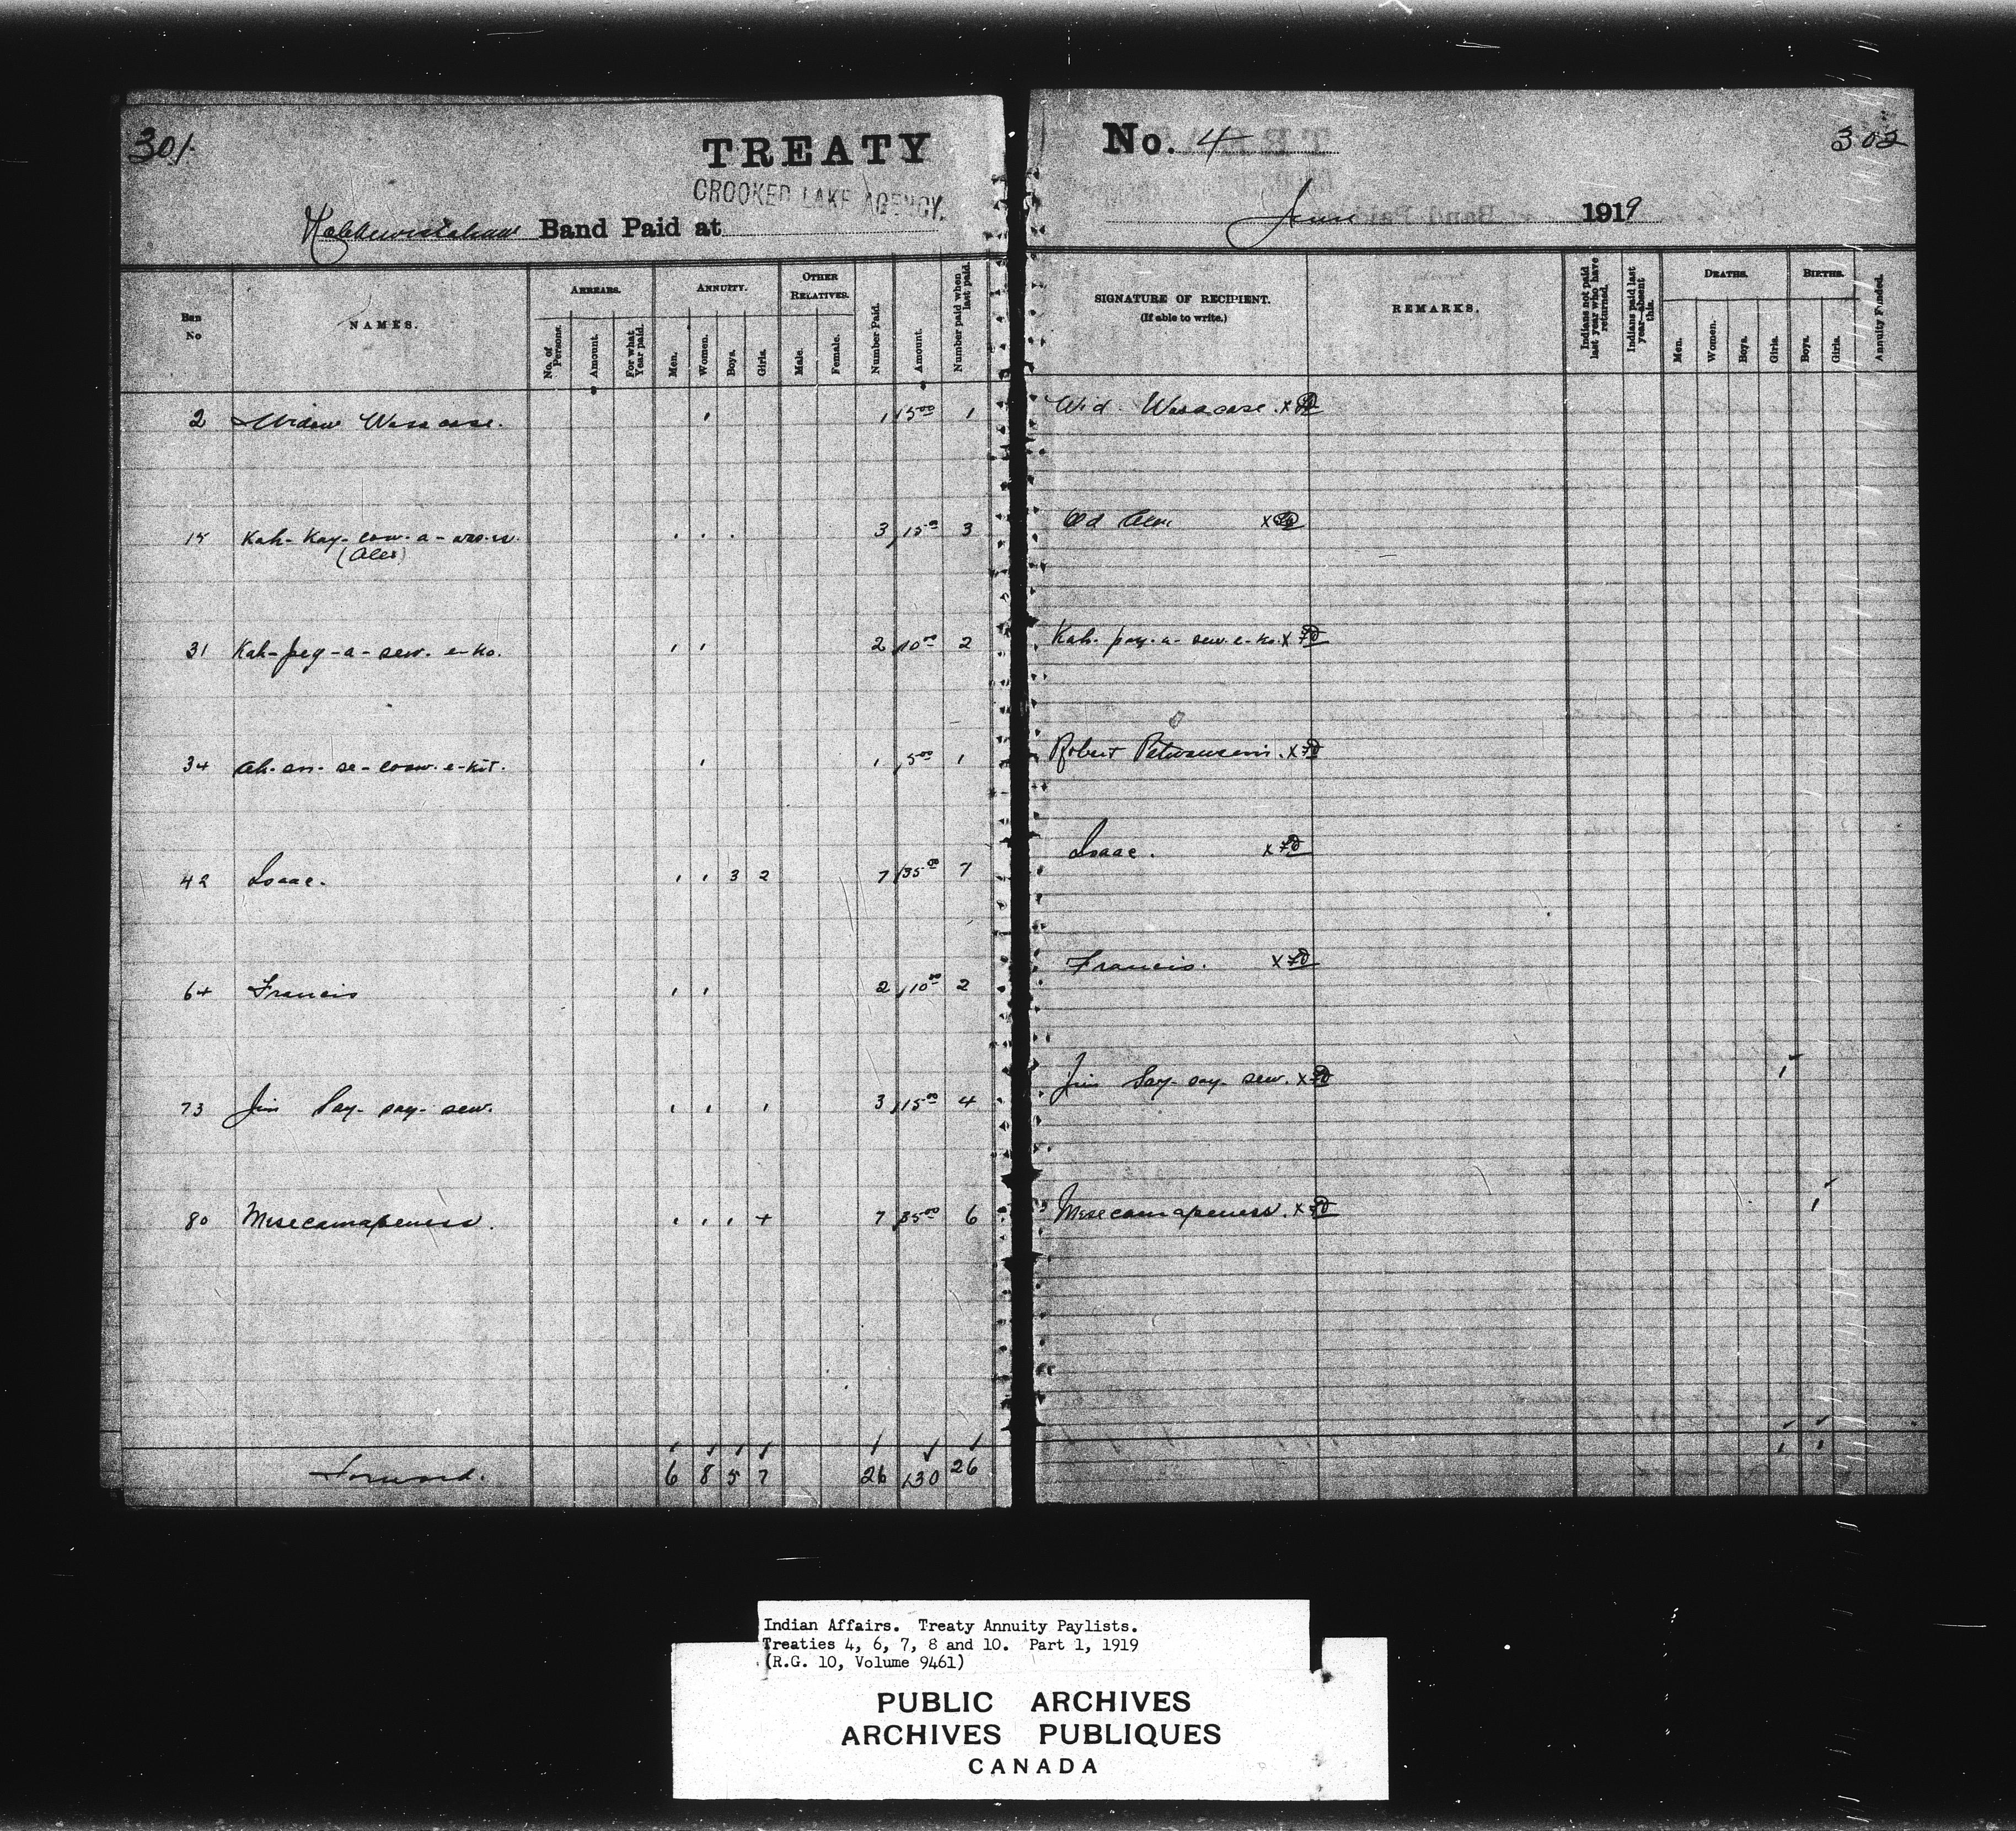 301.
TREATY
CROOKED LAKE AGENCY.
Band Paid at
Ban No
NAMES.
ARREARS.
No. of Persons.
Amount.
For what Year paid.
ANNUITY.
Men.
Women.
Boys.
Girls.
OTHER RELATIVES.
Male.
Female.
Number Paid.
Amount.
Number paid when last paid.
2 Widow Wasacase. 1 1 5.00 1
15 3 15.00 3
(Alex)
31 Kah-pey-a-sew-e-ko. 1 1 2 10.00 2
34 1 1 5.00 1
42 Isaac. 1 1 3 2 7 35.00 7
64 Francis 1 1 2 10.00 2
73 Jim Say-say-sew. 1 1 1 3 15.00 4
80 Misecamapeness. 1 1 1 4 7 35.00 6
Forward. 6 8 5 7 26 130 26
No. 4
302
June 1919
SIGNATURE OF RECIPIENT.
(If able to write.)
REMARKS.
Indians not paid last year who have returned.
Indians paid last year—absent this.
DEATHS.
Men.
Women.
Boys.
Girls.
BIRTHS.
Boys.
Girls.
Annuity Funded.
Wid. Wasacase. X
X
Kah-pay-a-sew-e-ko. X
Robert X
Isaac. X
Francis. X
Jim Say-say-sew. X 1
Misecamapeness. X 1
1 1
Indian Affairs. Treaty Annuity Paylists.
Treaties 4, 6, 7, 8 and 10. Part 1, 1919
(R.G. 10, Volume 9461)
PUBLIC ARCHIVES
ARCHIVES PUBLIQUES
CANADA